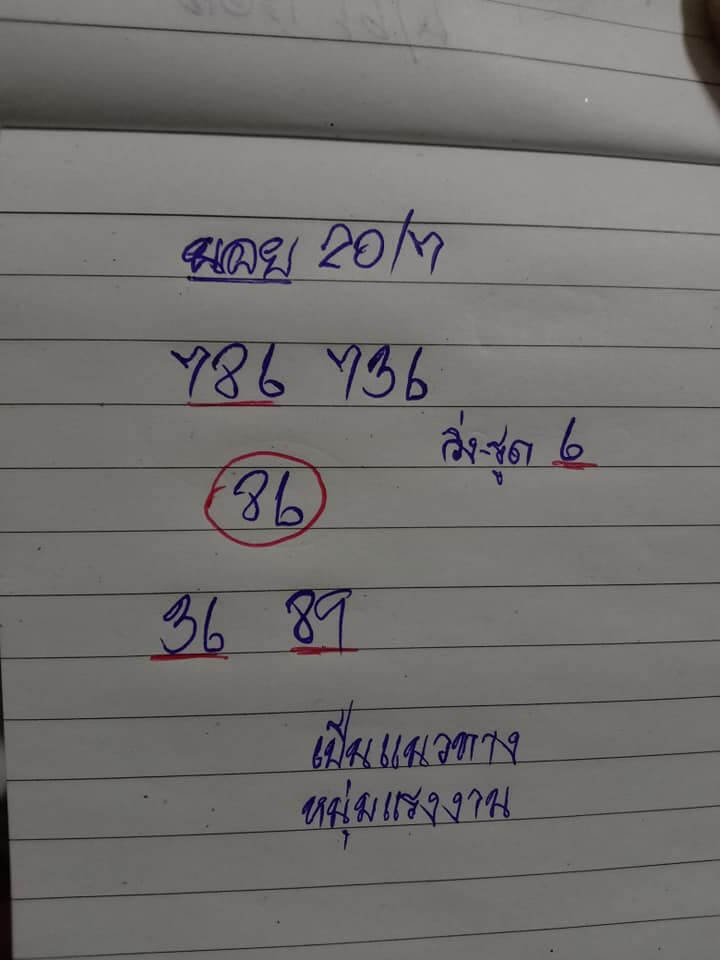 นอย 20/7
786 736
วิ่ง-รูด 6
86
36 89
เป็นแนวทาง
หนุ่มแรงงาน